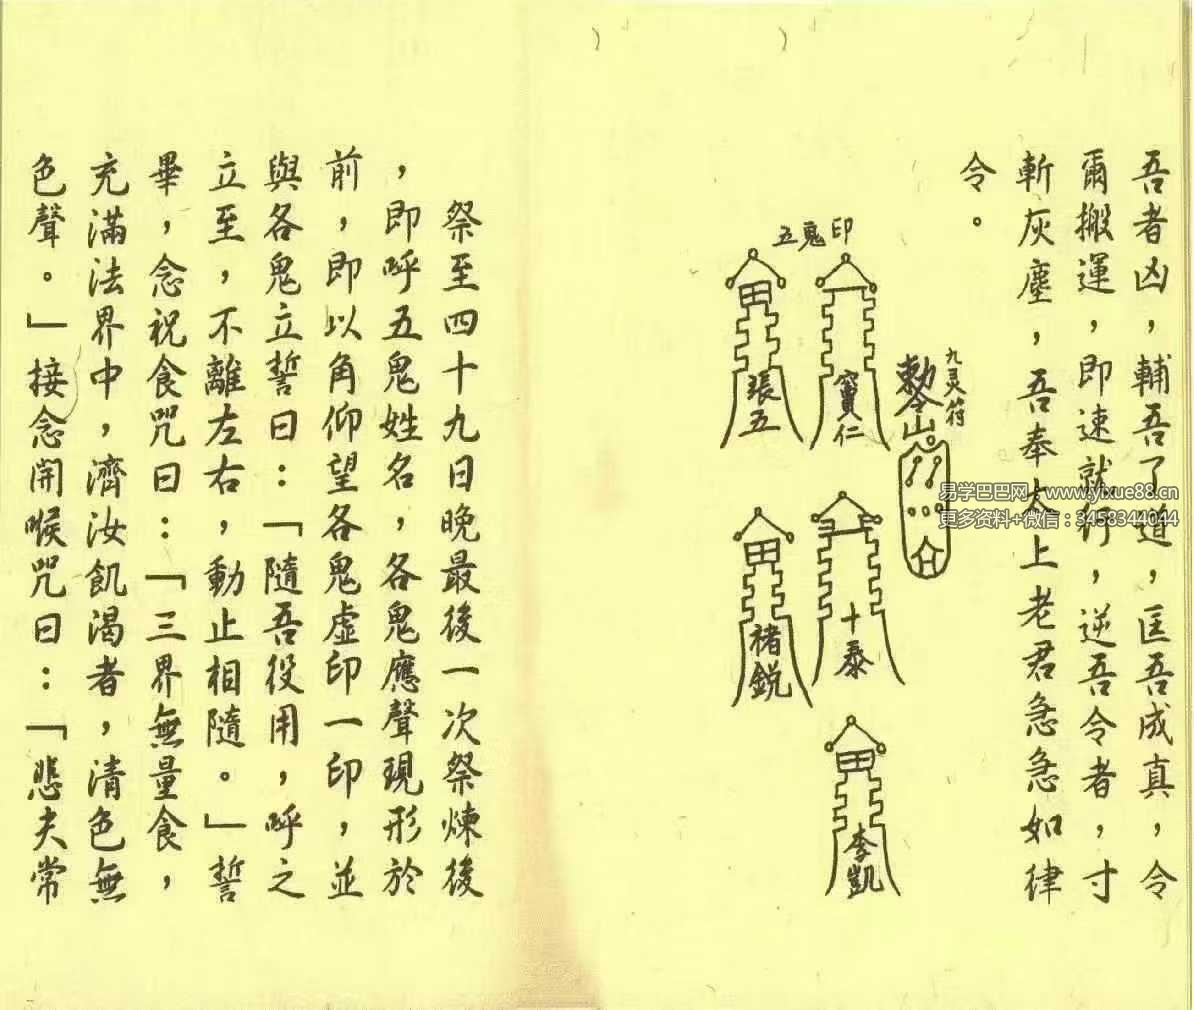 吾者凶，輔吾了道，匡吾成真，令
爾搬運，即速就行，逆吾令者，寸
斬灰塵，吾奉太上老君急急如律
令。
九灵符
敕令
五鬼印
竇仁
張五
十泰
褚銳
李凱
祭至四十九日晚最後一次祭煉後
，即呼五鬼姓名，各鬼應聲現形於
前，即以角仰望各鬼虛印一印，並
與各鬼立誓曰：「隨吾役用，呼之
立至，不離左右，動止相隨。」誓
畢，念祝食咒曰：「三界無量食，
充滿法界中，濟汝飢渴者，清色無
色聲。」接念開喉咒曰：「悲夫常
易学巴巴网：www.yixue88.cn
更多资料+微信：3458344044